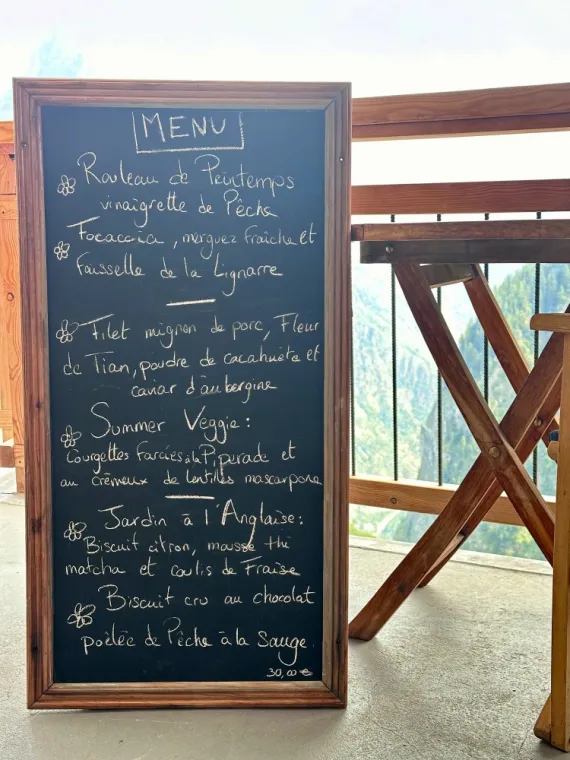 MENU
Rouleau de Printemps
vinaigrette de Pêche
Focaccia, merguez fraîche et
Faisselle de la Lignarre
Filet mignon de porc, Fleur
de Tian, poudre de cacahuète et
caviar d'aubergine
Summer Veggie :
Courgettes farcies à la Piperade et
au crémeux de lentilles mascarpone
Jardin à l'Anglaise :
Biscuit citron, mousse thé
matcha et coulis de Fraise
Biscuit cru au chocolat
poêlée de Pêche à la Sauge.
30,00 €